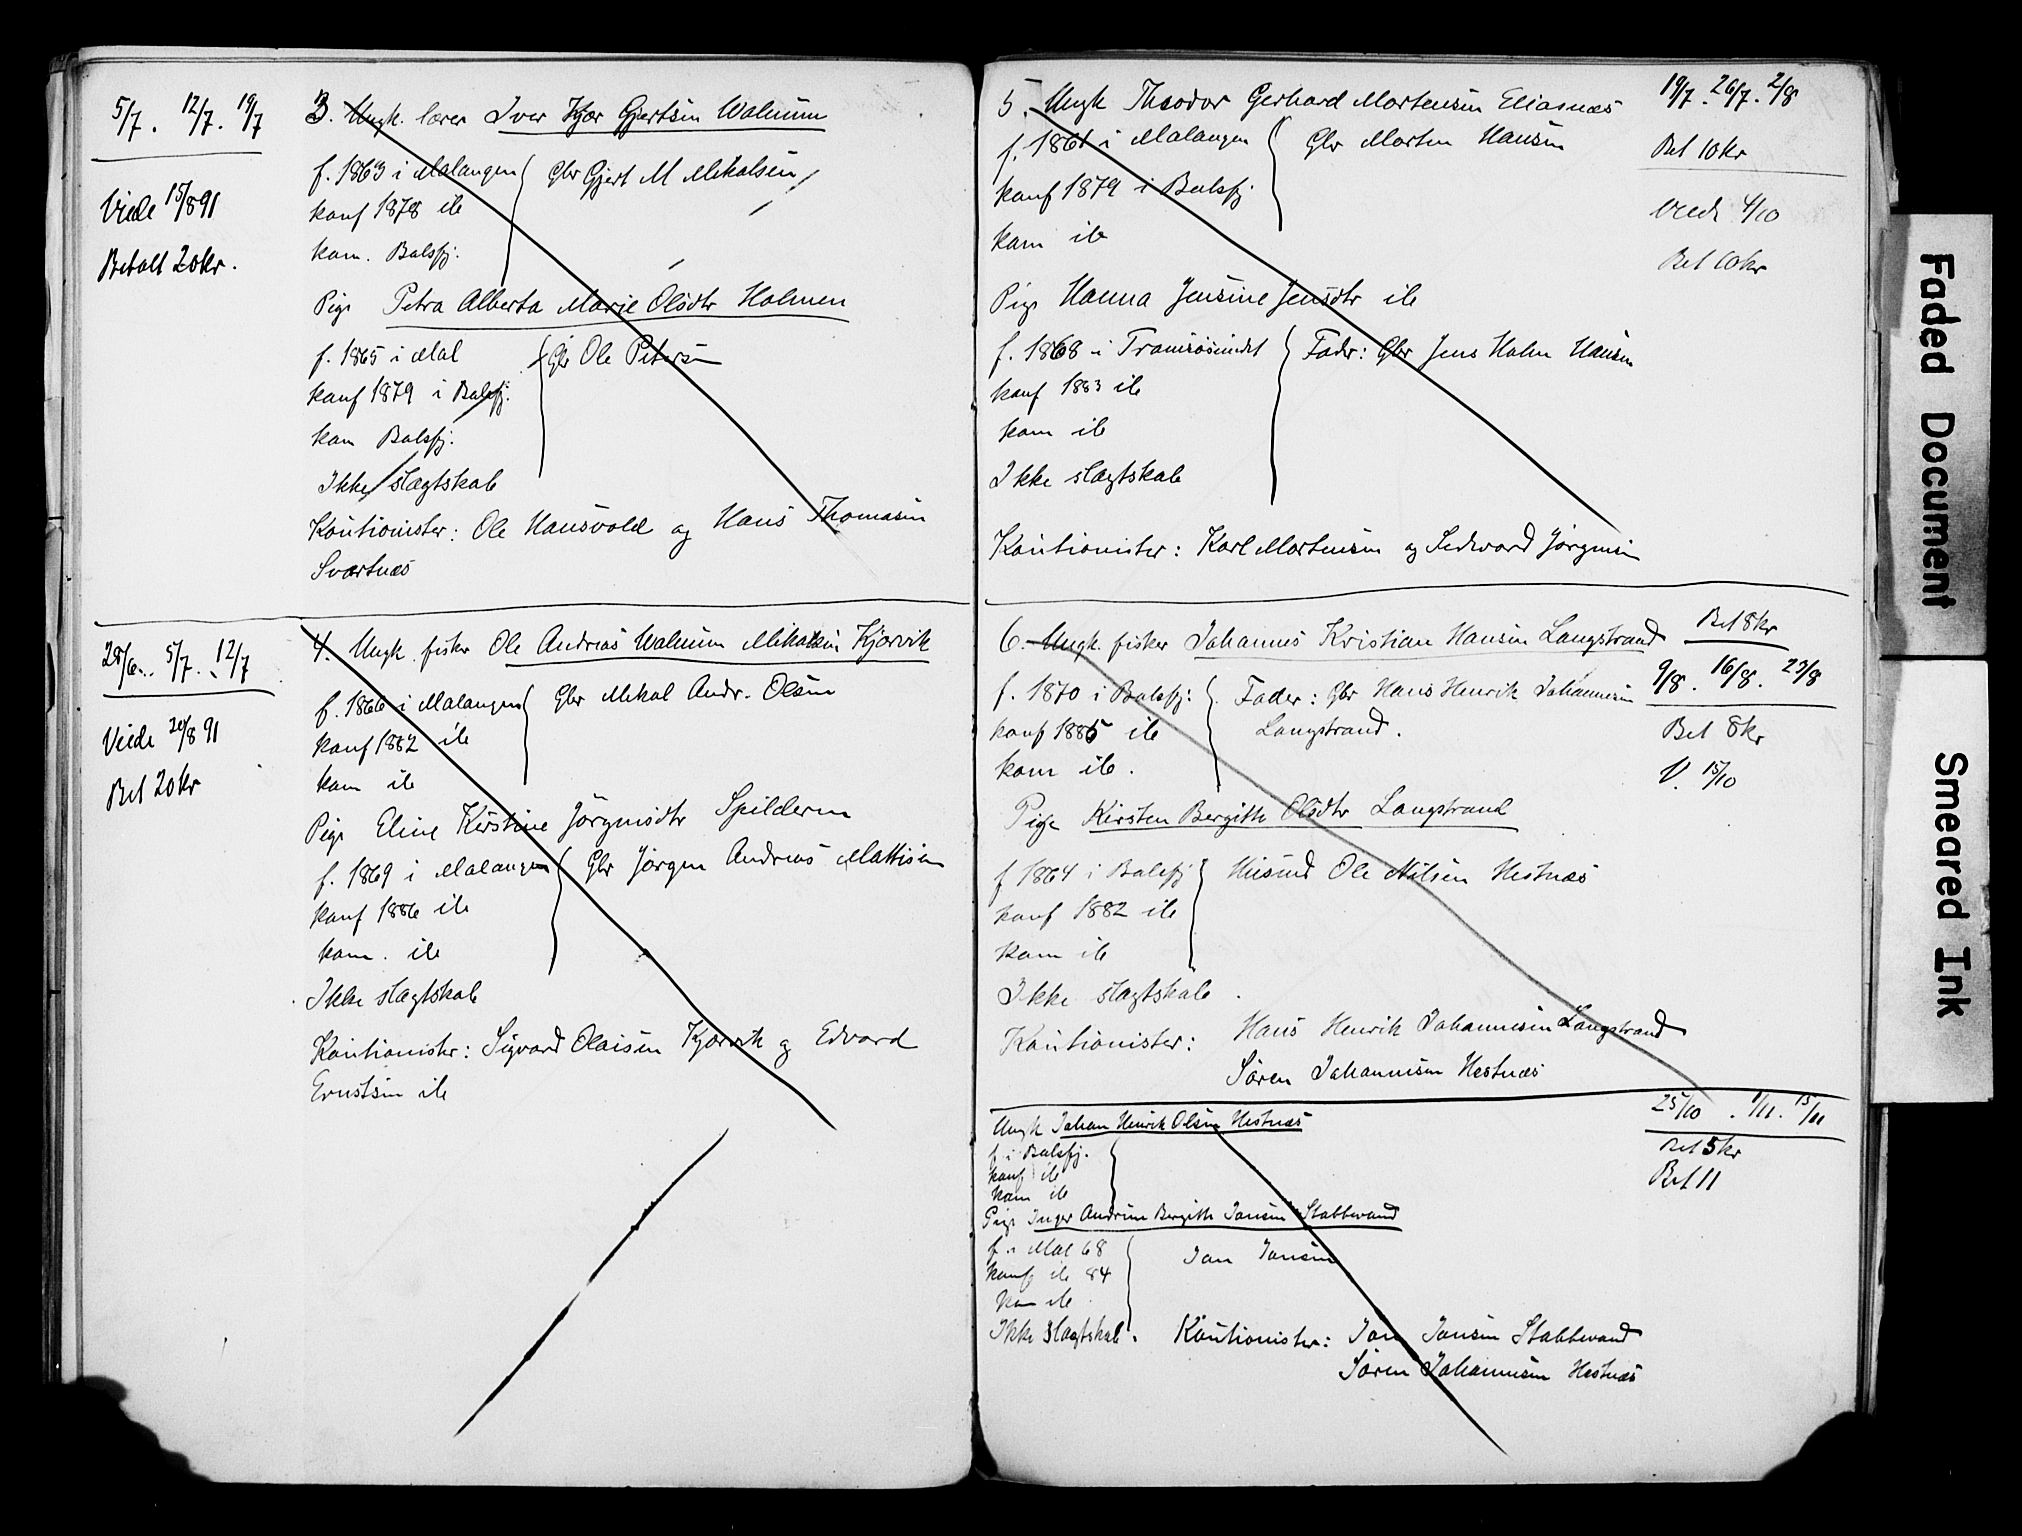 5/7. 12/7. 19/7
Viede 15/8 91
Betalt 20 kr.
3. Ungk. lærer Iver Kjær Gjertsen Walnum
f. 1863 i Malangen Gbr Gjert M Mikalsen
konf 1878 ib
kom. Balsfj.
Pige Petra Alberta Marie Olsdtr Holmen
f. 1865 i Mal Gbr Ole Petersen
konf 1879 i Balsfj.
kom Balsfj.
Ikke slægtskab
Kautionister: Ole Hansvold og Hans Thomasen
Svartnæs
28/6. 5/7. 12/7
Viede 20/8 91
Bet 20 kr
4. Ungk. fisker Ole Andreas Walnum Mikalsen Kjærvik
f. 1866 i Malangen Gbr Mikal Andr. Olsen
konf 1882 ib
kom ib
Pige Eline Kirstine Jørgensdtr Spilderen
f. 1869 i Malangen Gbr Jørgen Andreas Mattisen
konf 1886 ib
kom. ib
Ikke slægtskab
Kautionister: Sigvard Olaisen Kjærvik og Edvard
Erntsen ib
5. Ungk Theodor Gerhard Mortensen Eliasnæs
f. 1861 i Malangen Gbr Morten Hansen
konf 1879 i Balsfj.
kom ib
Pige Hanna Jensine Jensdtr ib
f. 1868 i Tromsösundet Fader: Gbr Jens Holm Hansen
konf 1883 ib
kom ib
Ikke slægtskab
Kautionister: Karl Mortensen og Sedvard Jörgensen
19/7. 26/7. 2/8
Bet 10 kr
Viede 4/10
Bet 10 kr
6. Ungk. fisker Johannes Kristian Hansen Langstrand
f. 1870 i Balsfj. Fader: Gbr Hans Henrik Johannesen
konf 1885 ib Langstrand.
kom ib.
Pige Kirsten Bergitte Olsdtr Langstrand
f 1864 i Balsfj Husmd Ole Nilsen Hestnæs
konf 1882 ib
kom ib
Ikke slægtskab.
Kautionister: Hans Henrik Johannesen Langstrand
Sören Johannesen Hestnæs
Bet 8 kr
9/8. 16/8. 23/8
Bet 8 kr
V. 15/10
Ungk Johan Henrik Olsen Hestnæs
f i Balsfj.
konf ib
kom ib
Pige Inger Andrine Bergitte Jansen Stabbevand
f. i Mal 68 Jan Jansen
konf ib 84
kom ib
Ikke slægtskab. Kautionister: Jan Jansen Stabbevand
Sören Johannesen Hestnæs
25/10. 1/11. 15/11
Bet 5 kr
Bet 11
Faded Document
Smeared Ink